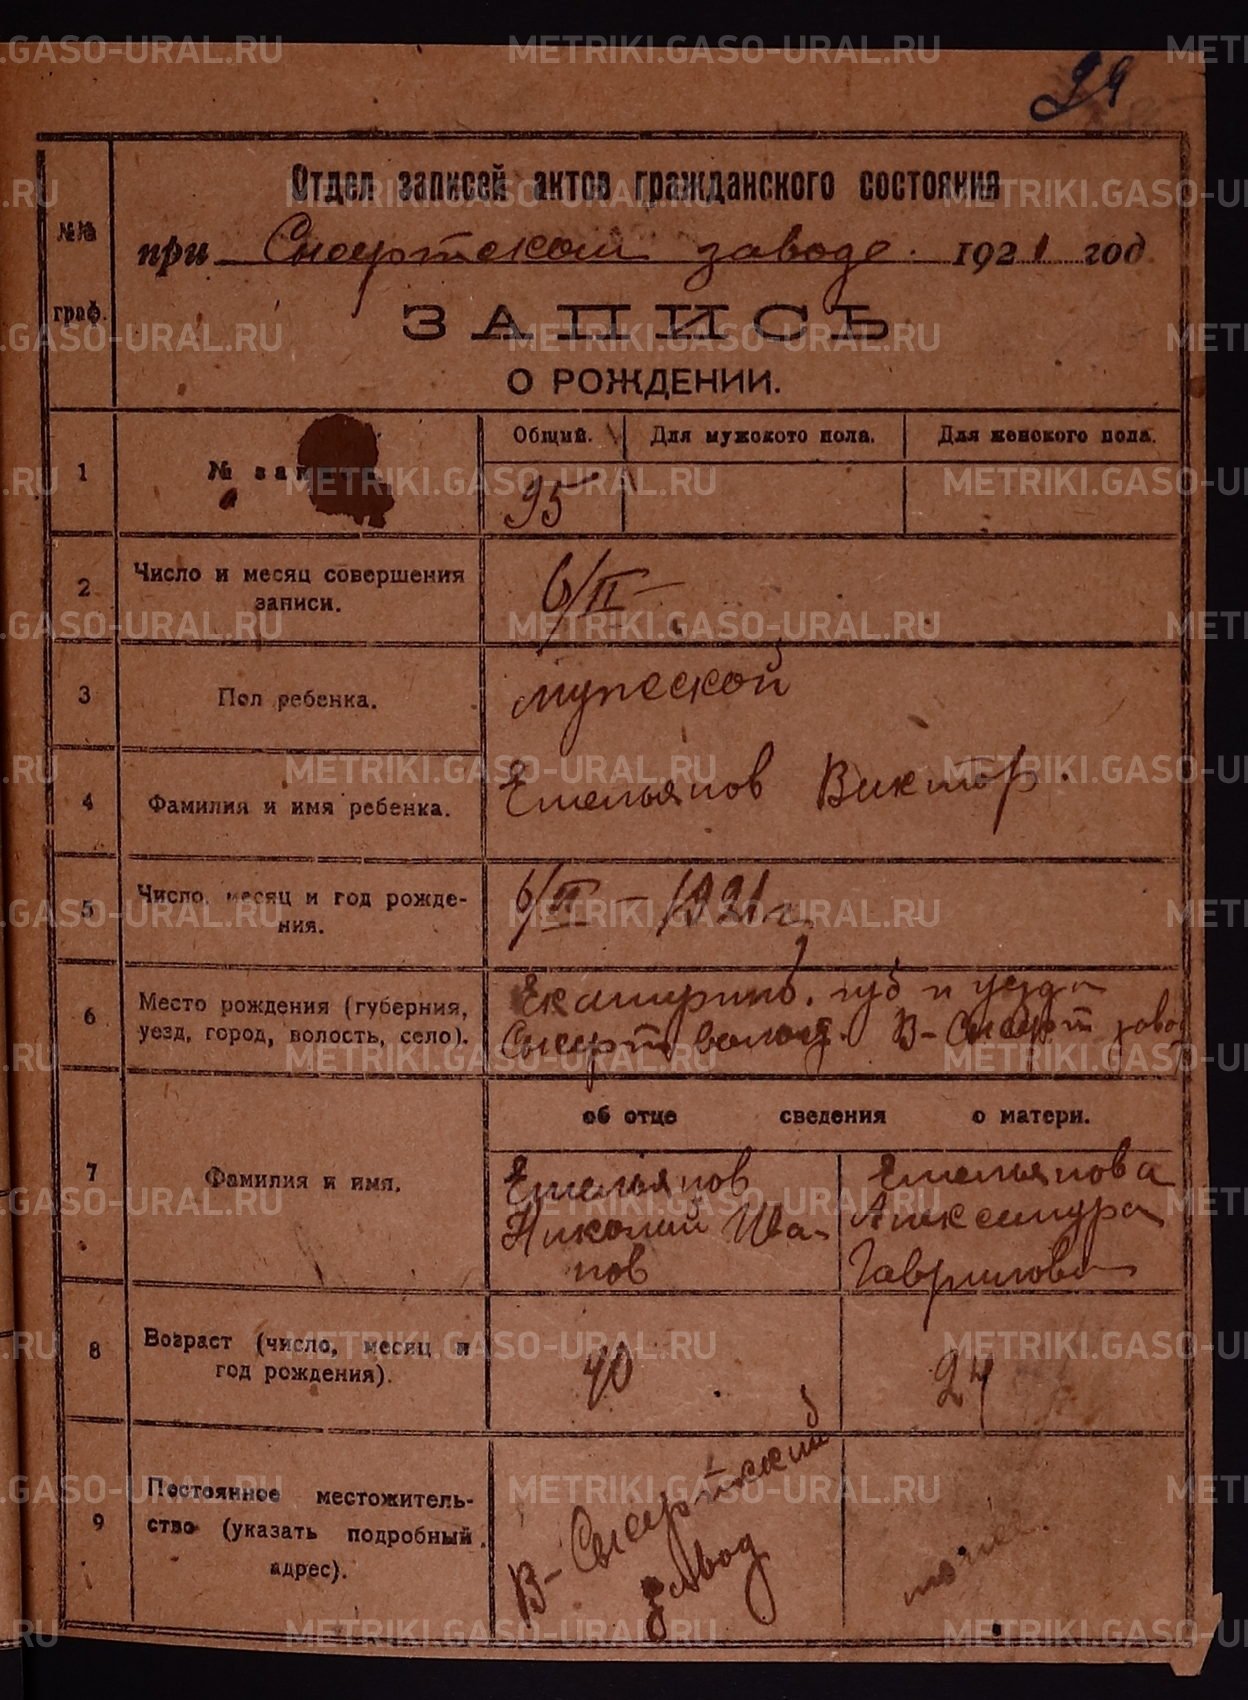 29
Отдел записей актов гражданского состояния
№№
граф.
при Сысертском заводе. 1921 год
ЗАПИСЬ
О РОЖДЕНИИ.
1
№ зап
Общий.
Для мужского пола.
Для женского пола.
95
2
Число и месяц совершения
записи.
6/II
3
Пол ребенка.
мужской
4
Фамилия и имя ребенка.
Емельянов Виктор.
5
Число, месяц и год рожде-
ния.
6/II – 1921 г.
6
Место рождения (губерния,
уезд, город, волость, село).
Екатеринб. губ и уезда
Сысерт волост. В-Сысерт завод
7
Фамилия и имя.
об отце сведения о матери.
Емельянов
Николай Ива-
нов
Емельянова
Александра
Гаврилова
8
Возраст (число, месяц и
год рождения).
40
24
9
Постоянное местожитель-
ство (указать подробный
адрес).
В-Сысертский
завод
тоже.
METRIKI.GASO-URAL.RU